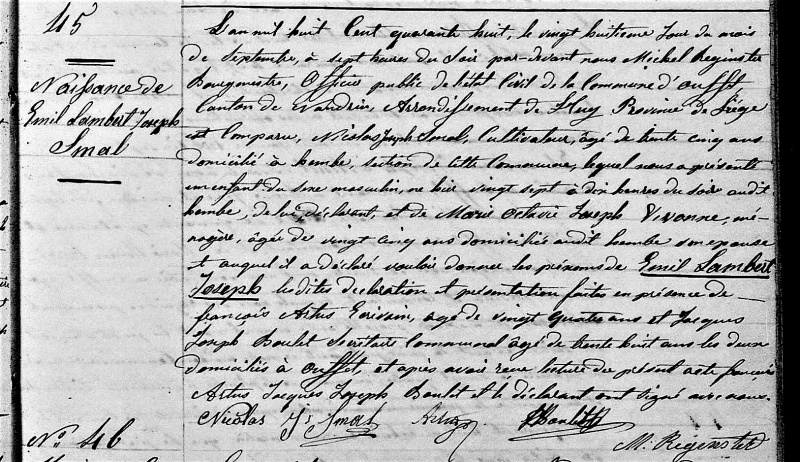 45
Naissance de
Emil Lambert Joseph
Smal
L'an mil huit Cent quarante huit, le vingt huitieme jour du mois
de Septembre, à sept heures du Soir par-devant nous Michel Reginster
Bourgmestre, Officier public de l'état Civil de la Commune d'ouffet,
Canton de Nandrin, Arrondissement de Huy Province de Liége
est Comparu, Nicolas Joseph Smal, Cultivateur, âgé de trente cinq ans
domicilié à hembe, section de cette Commune, lequel nous a présenté
un enfant du sexe masculin, né hier vingt sept à dix heures du soir audit
hembe, de lui déclarant, et de Marie Octavie Joseph Vivonne, mé-
nagère, âgée de vingt cinq ans domiciliés audit hembe son epouse
et auquel il a déclaré vouloir donner les prénoms de Emil Lambert
Joseph lesdites declaration et présentation faites en présence de
françois Artus Ecrivain, agé de vingt quatre ans et Jacques
Joseph Boulet Secrétaire Communal âgé de trente huit ans les deux
domiciliés à ouffet, et après avoir recu lecture du présent acte françois
Artus Jacques Joseph Boulet et le déclarant ont signé avec nous.
Nicolas Js Smal Artus JJBoulet
M: Reginster
No 46